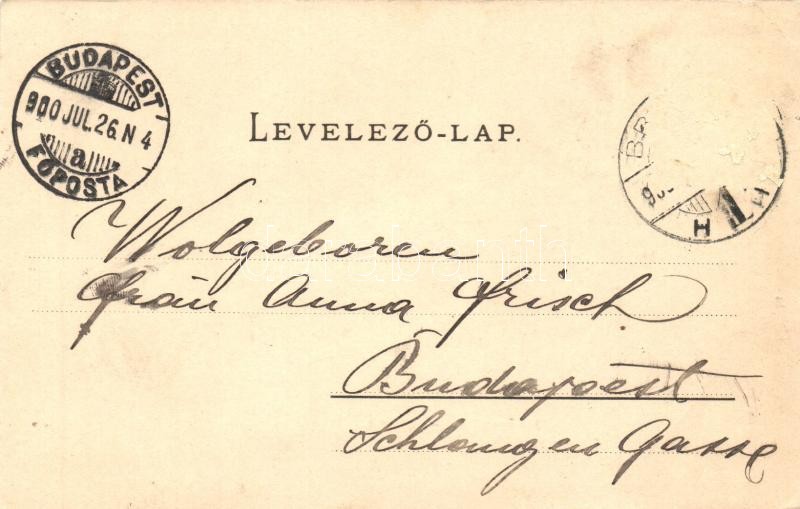 BUDAPEST
900 JUL. 26. N 4
a
FŐPOSTA
LEVELEZŐ-LAP.
BA
900
H
H
Wolgeboren
Fraŭ Anna Frisch
Budapest
Schlangen Gasse
darabanth